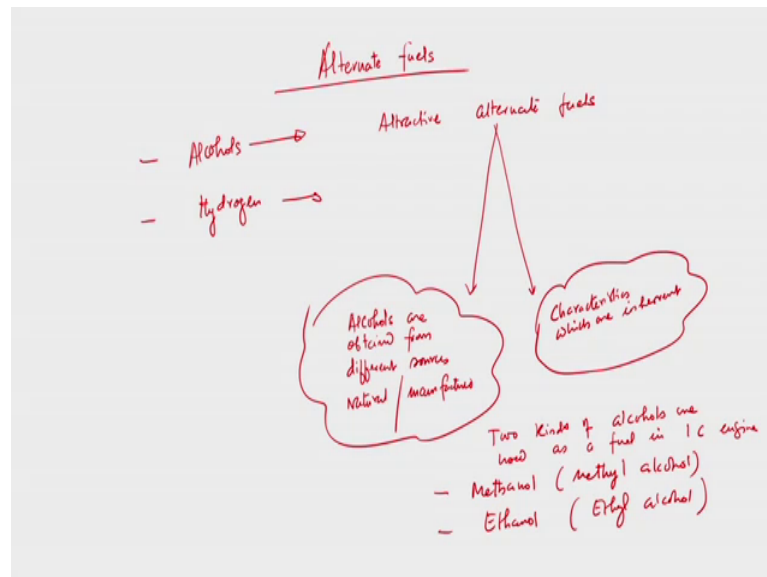 Alternate fuels
- Alcohols → Attractive alternate fuels
- Hydrogen →
Alcohols are
obtained from
different sources
Natural / manufactured
Characteristics
which are inherent
Two kinds of alcohols are
used as a fuel in IC engine
- Methanol (methyl alcohol)
- Ethanol (Ethyl alcohol)